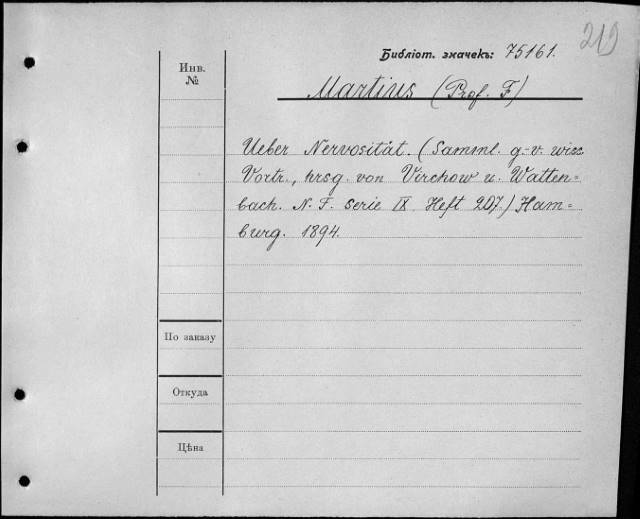 219
Библіот. значекъ: 75161.
Инв.
№
Martius (Prof. F)
Ueber Nervosität. (Samml. g.-v. wiss.
Vortr., hrsg. von Virchow u. Watten=
bach. N. F. Serie IX Heft 207.) Ham=
burg. 1894.
По заказу
Откуда
Цѣна